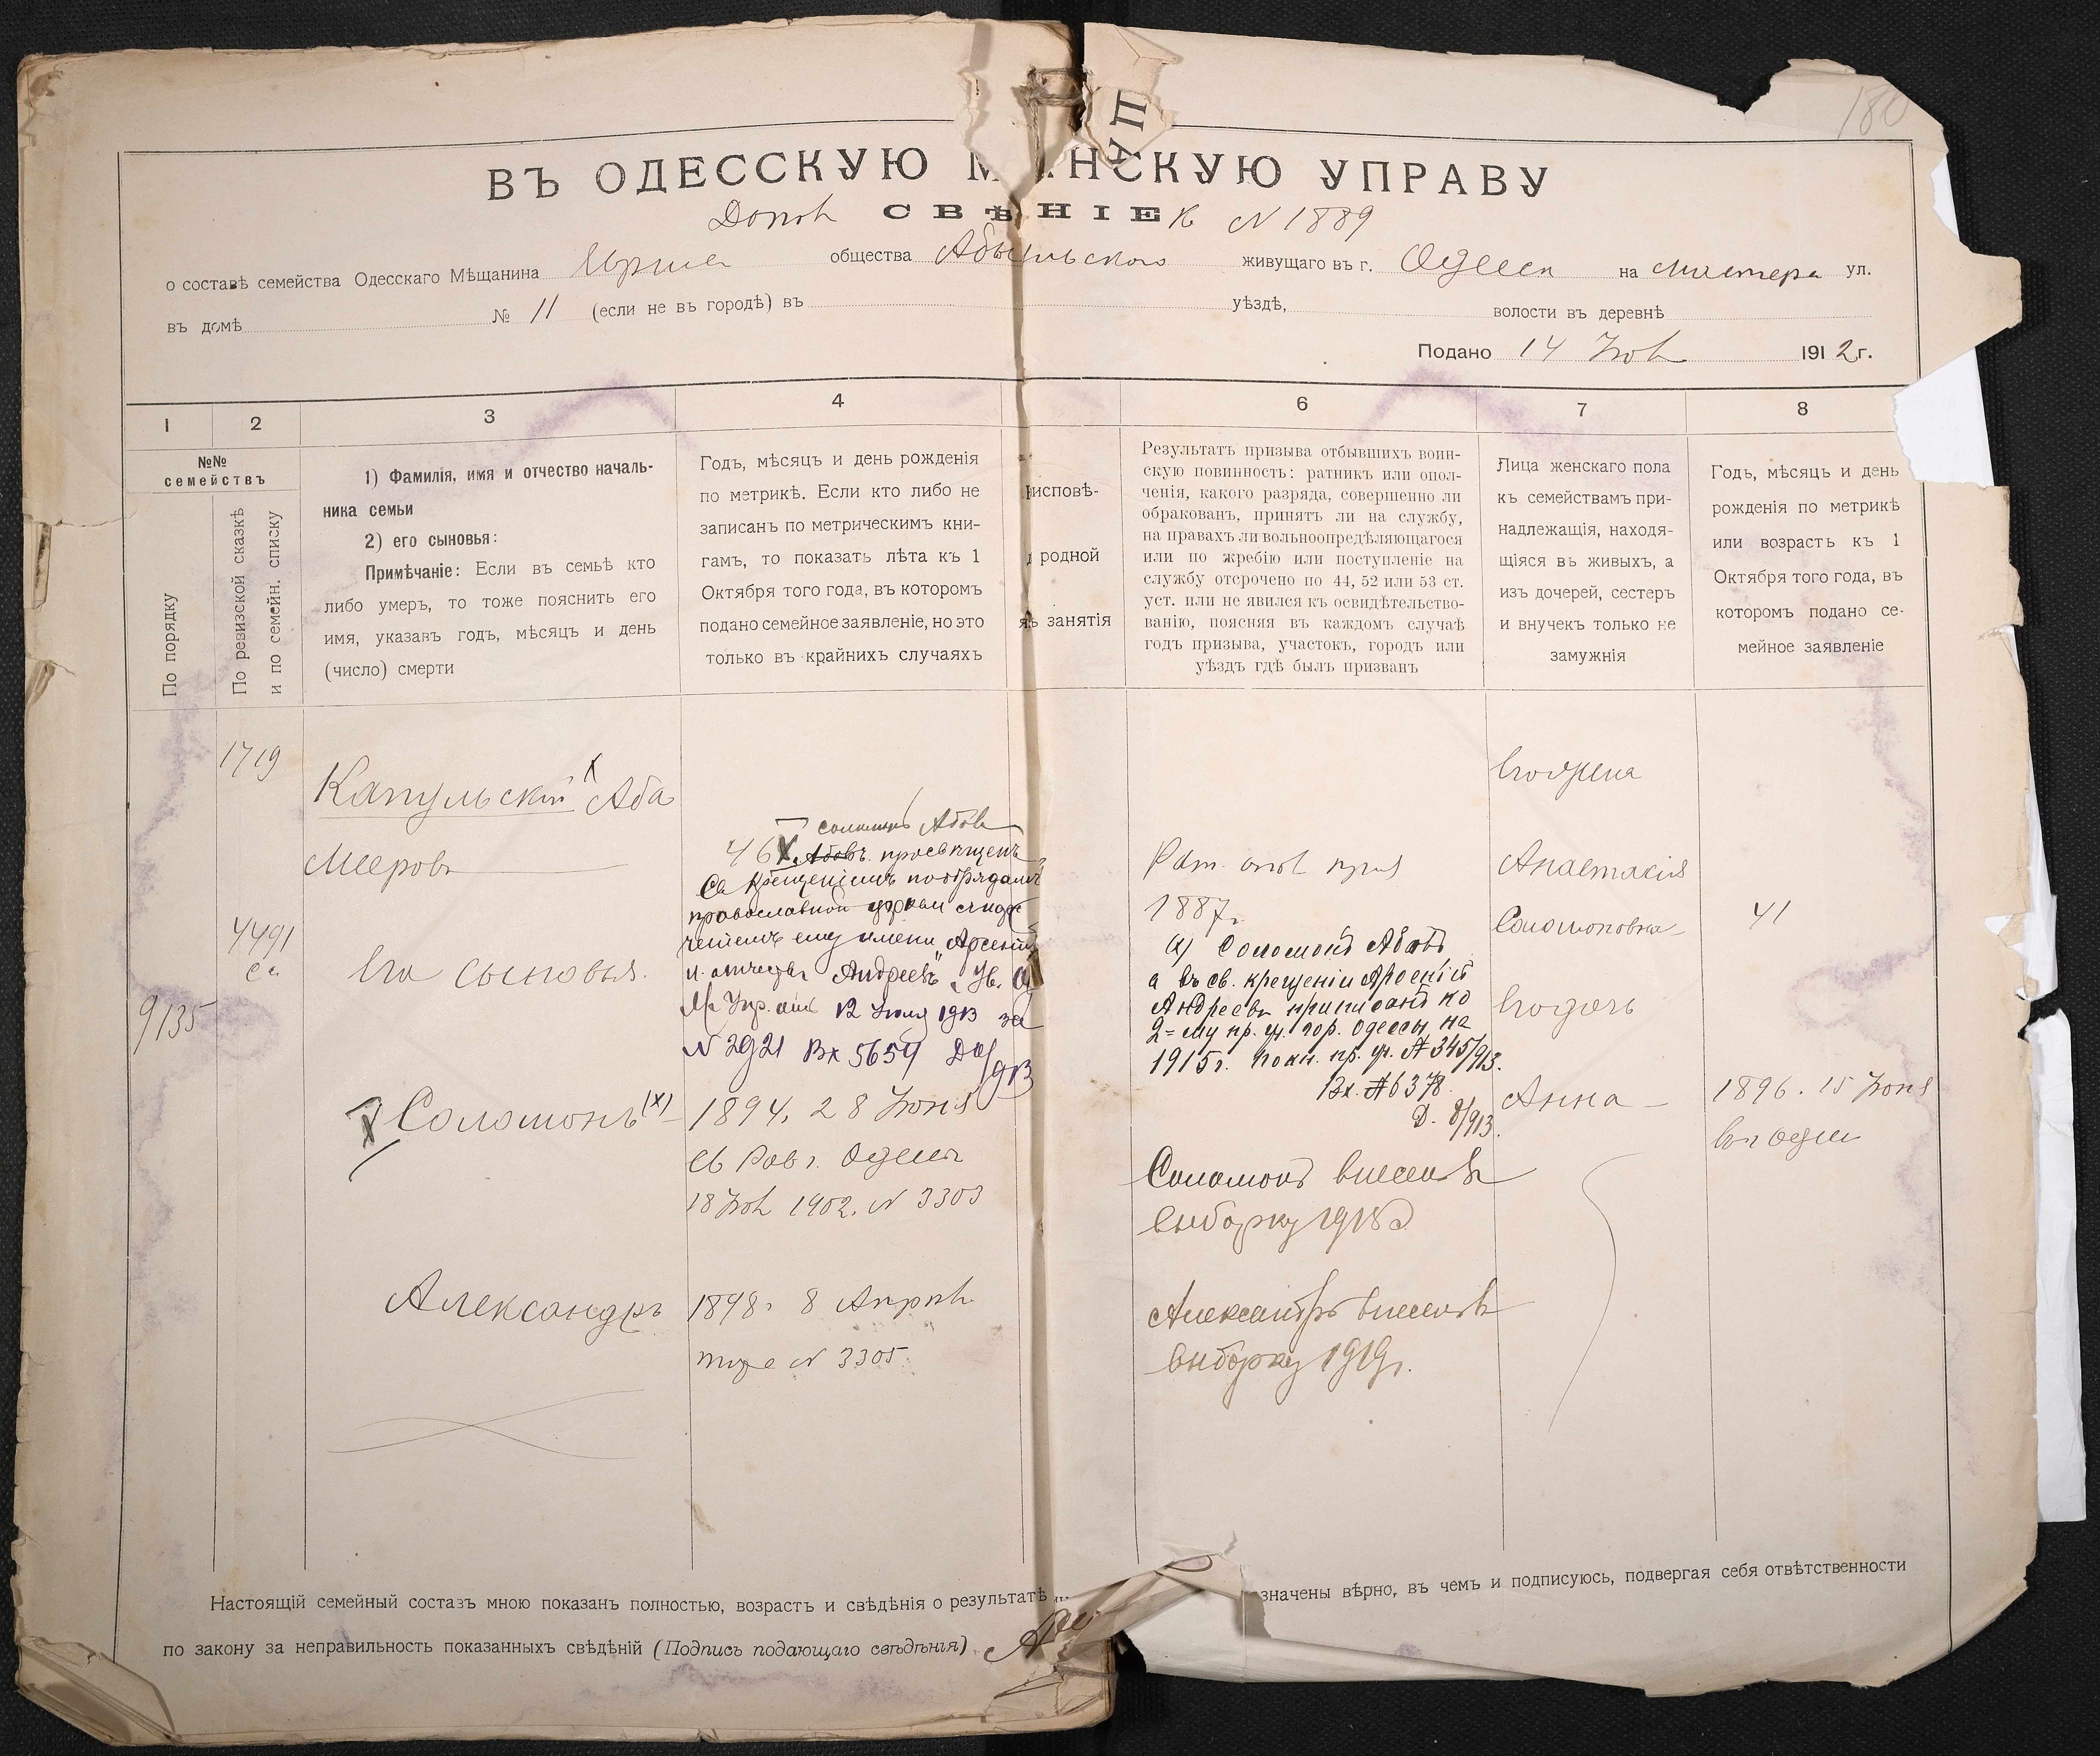 180
ВЪ ОДЕССКУЮ М НСКУЮ УПРАВУ
АП
СВѢ НІЕ къ N 1889
о составѣ семейства Одесскаго Мѣщанина общества живущаго въ г. Одесса на ул.
въ домѣ № 11 (если не въ городѣ) въ уѣздѣ, волости въ деревнѣ
Подано 14 1912 г.
1 2 3 4 6 7 8
№№
семействъ
По порядку
По ревизской сказкѣ
и по семейн. списку
1) Фамилія, имя и отчество началь-
ника семьи
2) его сыновья:
Примѣчаніе: Если въ семьѣ кто
либо умеръ, то тоже пояснить его
имя, указавъ годъ, мѣсяцъ и день
(число) смерти
Годъ, мѣсяцъ и день рожденія
по метрикѣ. Если кто либо не
записанъ по метрическимъ кни-
гамъ, то показать лѣта къ 1
Октября того года, въ которомъ
подано семейное заявленіе, но это
только въ крайнихъ случаяхъ
исповѣ-
родной
занятія
Результатъ призыва отбывшихъ воин-
скую повинность: ратникъ или опол-
ченія, какого разряда, совершенно ли
обракованъ, принятъ ли на службу,
на правахъ ли вольноопредѣляющагося
или по жребію или поступленіе на
службу отсрочено по 44, 52 или 53 ст.
уст. или не явился къ освидѣтельство-
ванію, поясняя въ каждомъ случаѣ
годъ призыва, участокъ, городъ или
уѣздъ гдѣ былъ призванъ
Лица женскаго пола
къ семействамъ при-
надлежащія, находя-
щіяся въ живыхъ, а
изъ дочерей, сестеръ
и внучекъ только не
замужнія
Годъ, мѣсяцъ и день
рожденія по метрикѣ
или возрасть къ 1
Октября того года, въ
которомъ подано се-
мейное заявленіе
1719
Капульскій x Аба
Мееровъ
4491
9135
Его сыновья.
Соломонъ (x)
Александръ
46
x Соломонъ Абовъ
Абовъ. просвѣщенъ
Св крещеніемъ по обрядамъ
православной церкви съ наре
ченіемъ ему имени „Арсеній“
и отчества „Андреевъ“
12 Іюля 1913 за
N 2921 Вх 5654
1894. 28 Іюня
Одессы
1902. N 3303
1898 г. 8 Апрѣля
тоже N 3305
1887 г.
x) Соломонъ Абовъ
а въ св. крещеніи Арсеній
Андреевъ приписанъ ко
2=му пр. уч. гор. Одессы на
1915 г. пр. уч. № 345/913.
Вх. № 6378
Д. 8/913.
Соломонъ внесенъ въ
выборку 1915
Александръ внесенъ въ
выборку 1919 г.
Его жена
Анастасія
Соломоновна
Его дочь
Анна
41
1896. 15 Іюня
въ Одессѣ
Настоящій семейный составъ мною показанъ полностью, возрастъ и свѣдѣнія о результатѣ значены вѣрно, въ чемъ и подписуюсь, подвергая себя отвѣтственности
по закону за неправильность показанныхъ свѣдѣній (Подпись подающаго свѣдѣнія)